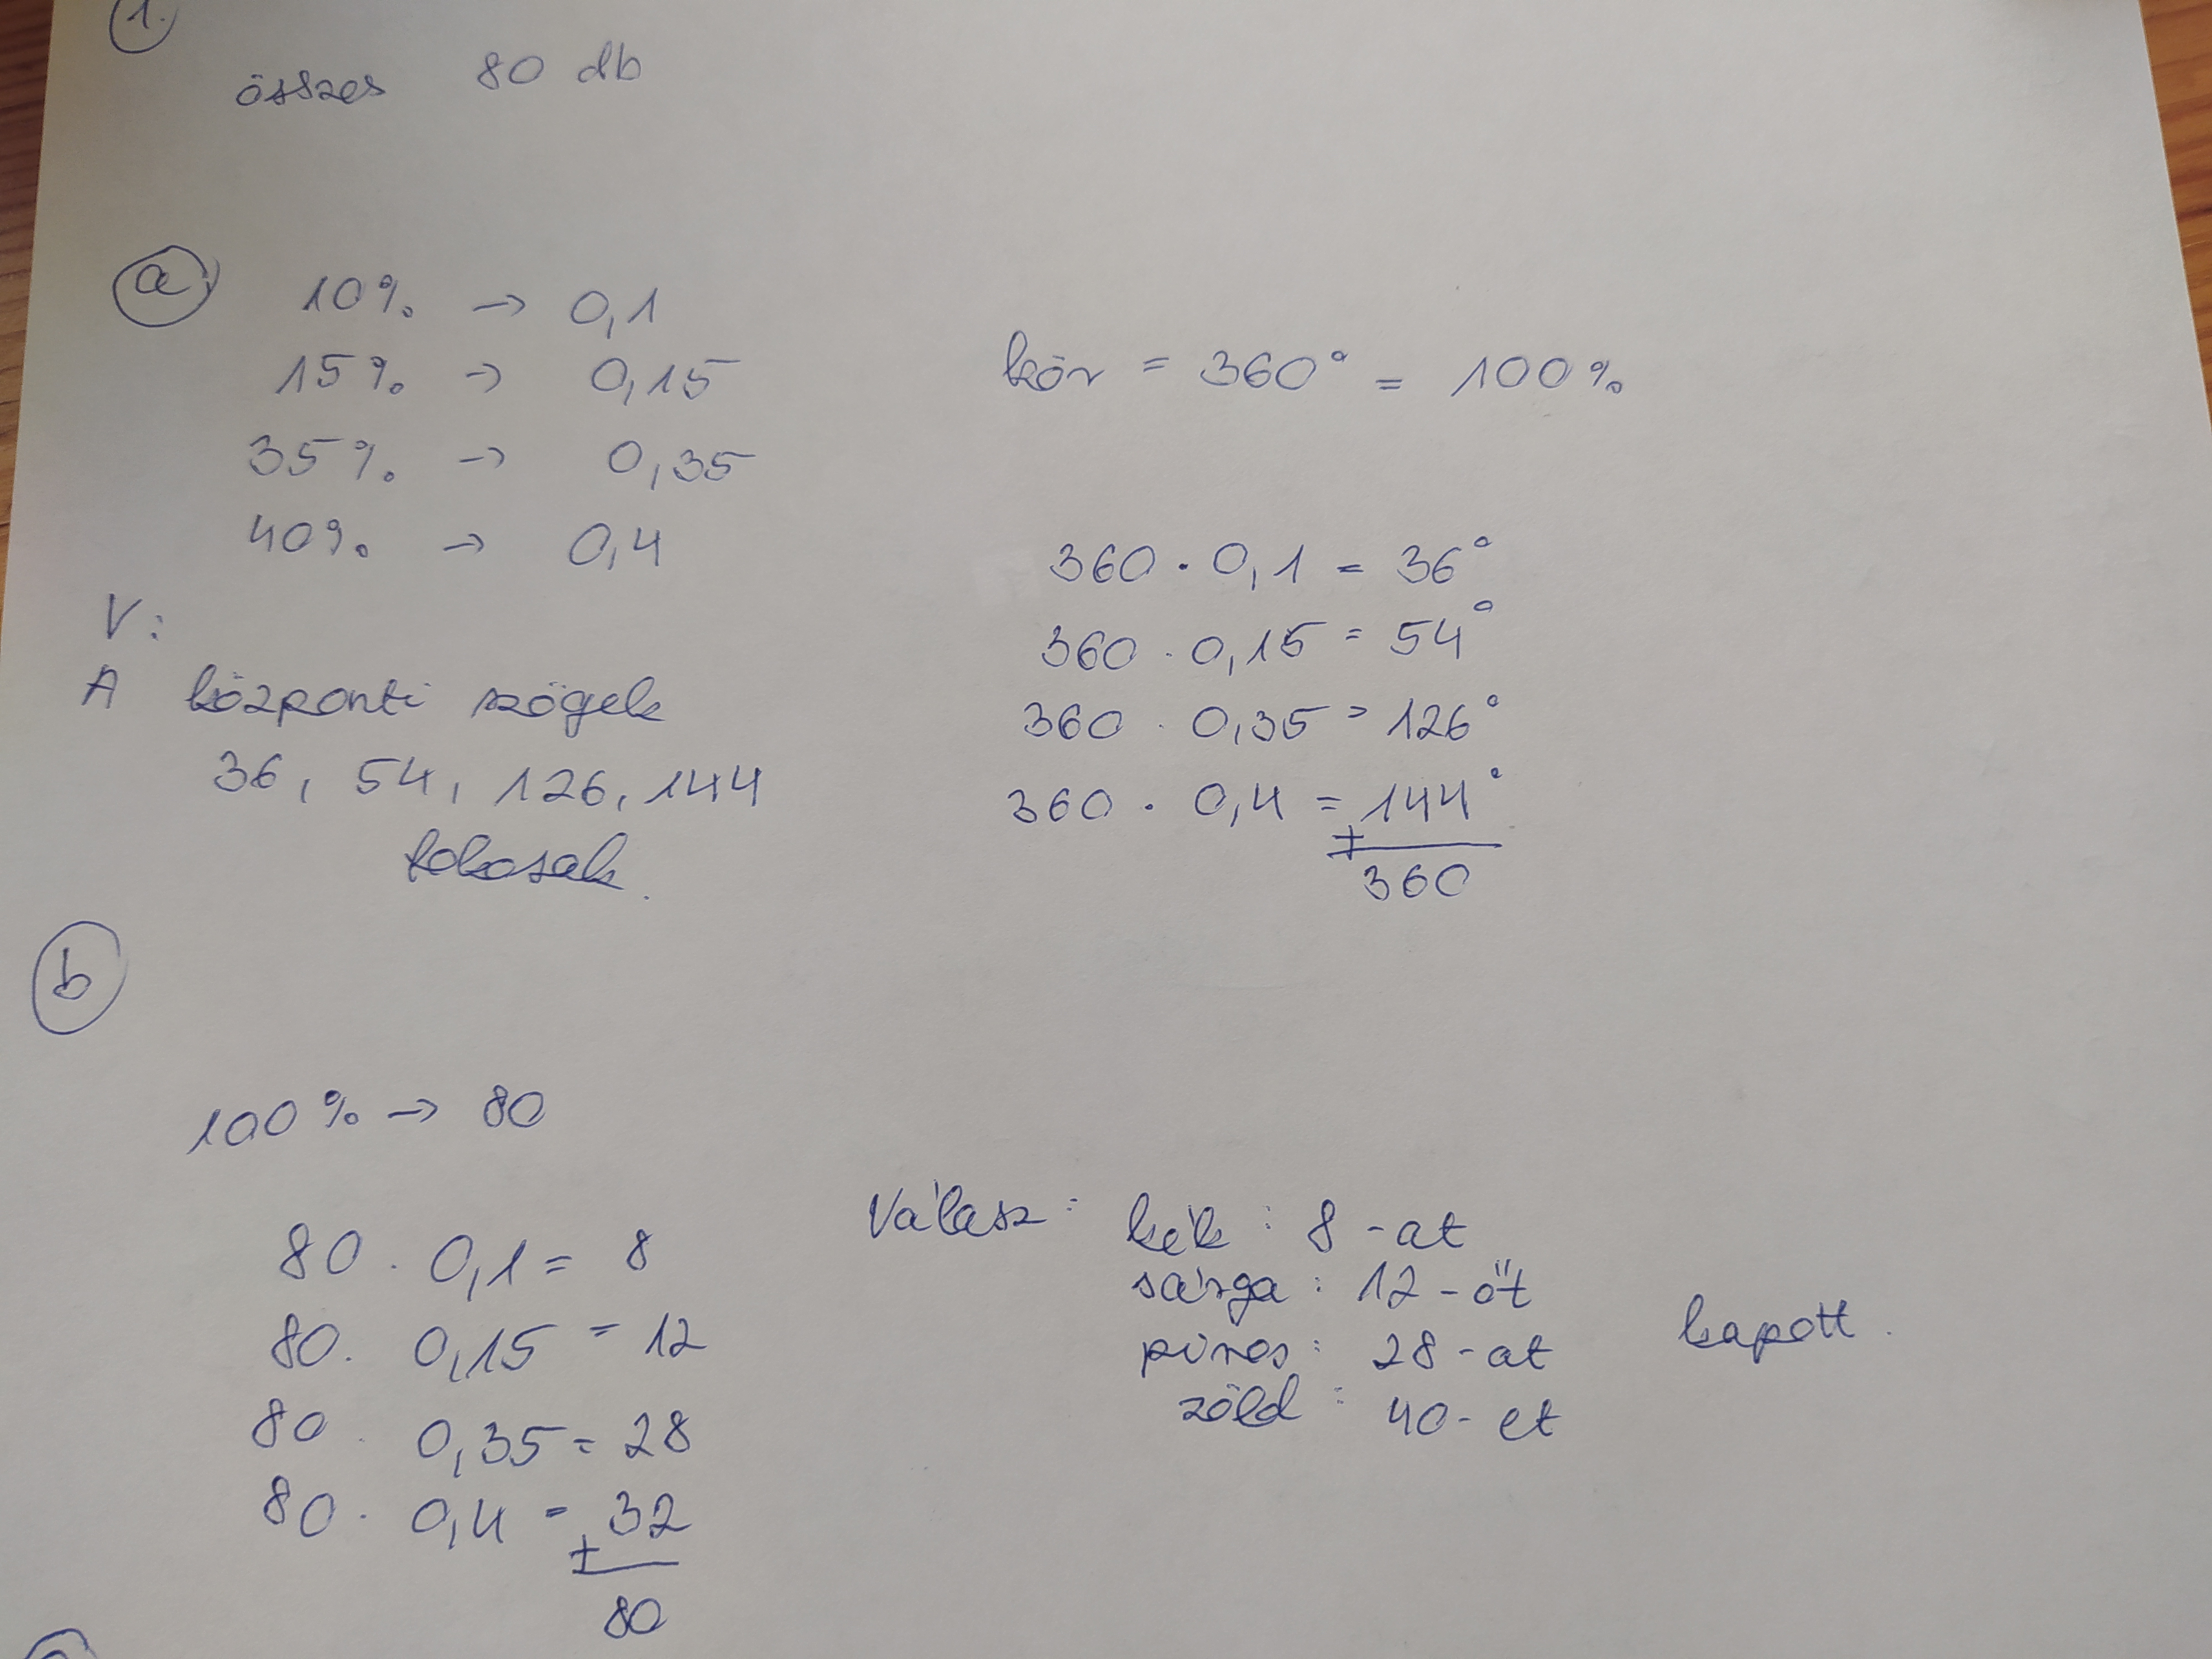 1.
összes 80 db
a
10% → 0,1
15% → 0,15
35% → 0,35
40% → 0,4
kör = 360° = 100%
360 · 0,1 = 36°
360 · 0,15 = 54°
360 · 0,35 = 126°
360 · 0,4 = 144°
+
360
V:
A központi szögek
36, 54, 126, 144
fokosak.
b
100% → 80
80 · 0,1 = 8
80 · 0,15 = 12
80 · 0,35 = 28
80 · 0,4 = 32
+
80
Válasz: kék: 8-at
sárga: 12-őt
piros: 28-at
zöld: 40-et
kapott.